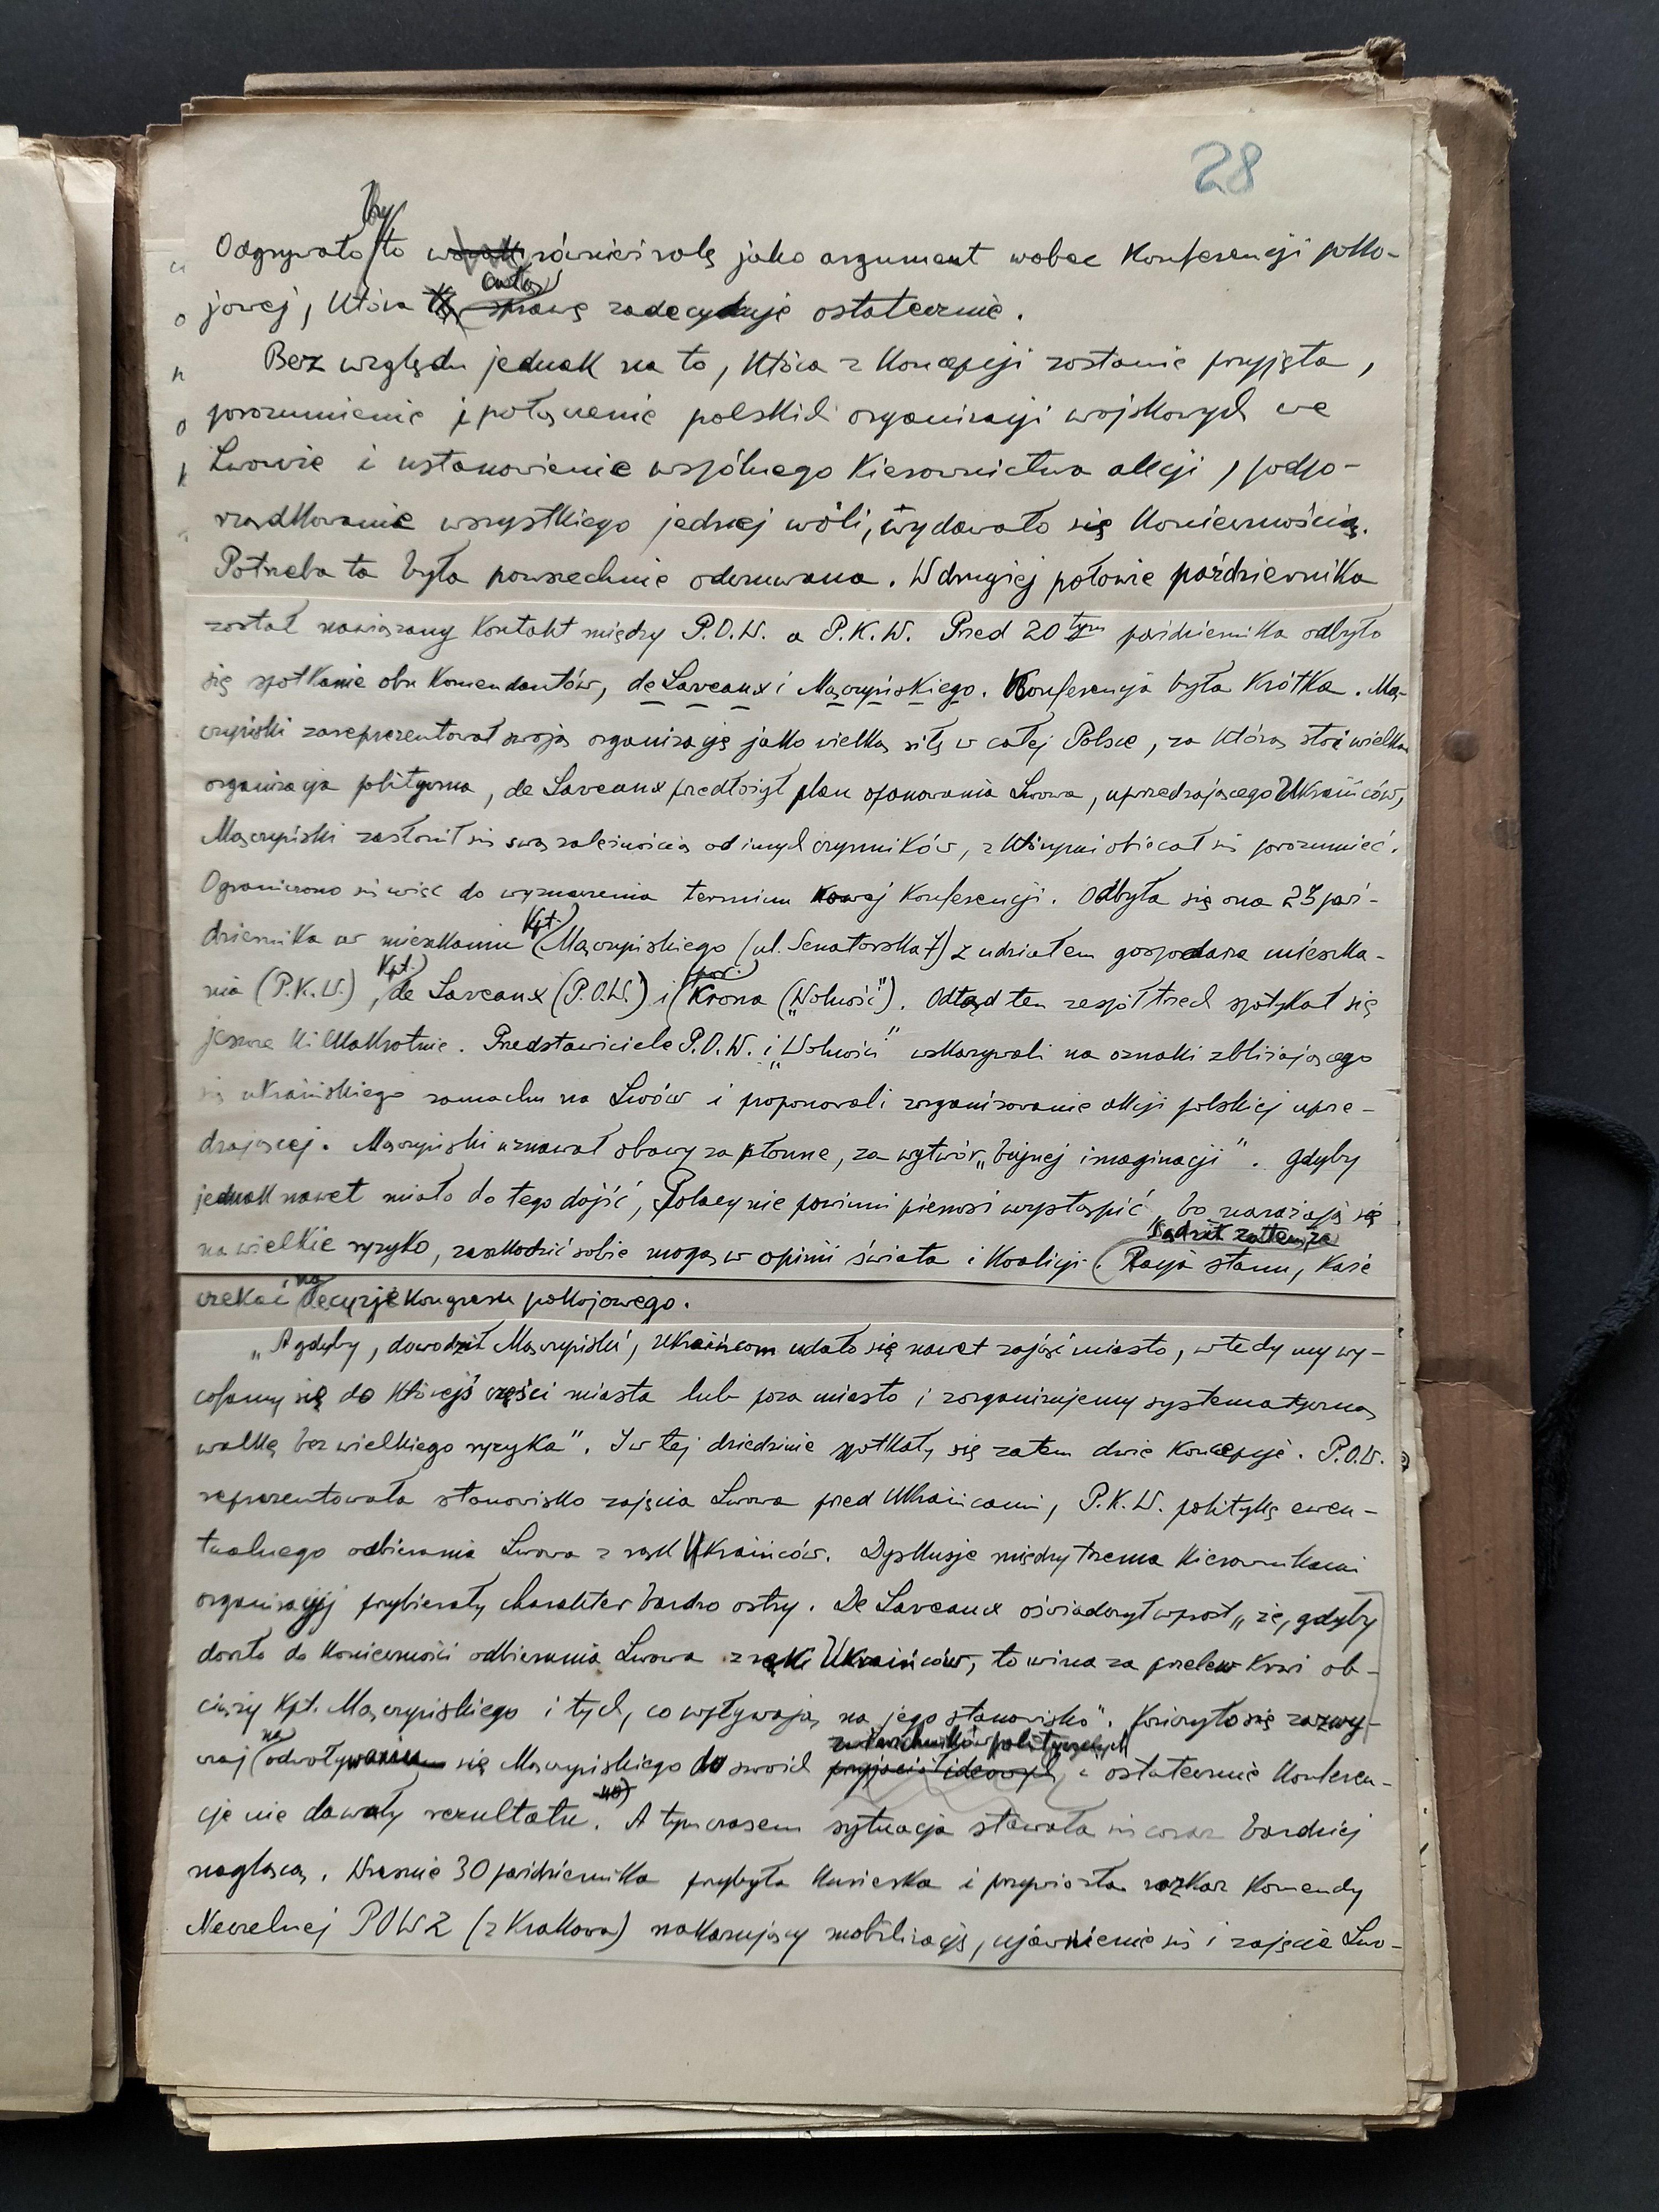 28
Odgrywało by to również rolę jako argument wobec Konferencji poko-
jowej, która całość zadecyduje ostatecznie.
Bez względu jednak na to, która z koncepcji zostanie przyjęta,
porozumienie i połączenie polskich organizacji wojskowych we
Lwowie i ustanowienie wspólnego kierownictwa akcji, podpo-
rządkowanie wszystkiego jednej woli, wydawało się koniecznością.
Potrzeba ta była powszechnie odczuwana. W drugiej połowie października
został nawiązany kontakt między P.O.W. a P.K.W. Przed 20tym października odbyło
się spotkanie obu Komendantów, de Laveaux i Mączyńskiego. Konferencja była krótka. Mą-
czyński zareprezentował swoją organizację jako wielką siłę w całej Polsce, za którą stoi wielka
organizacja polityczna, de Laveaux przedłożył plan opanowania Lwowa, uprzedzającego Ukraińców,
Mączyński zasłonił się swą zależnością od innych czynników, z którymi obiecał się porozumieć.
Ograniczono się więc do wyznaczenia terminu nowej Konferencji. Odbyła się ona 23 paź-
dziernika w mieszkaniu Kpt. Mączyńskiego (ul. Senatorska 7) z udziałem gospodarza mieszka-
nia (P.K.W.), Kpt. de Laveaux (P.O.W.) i por. Krona („Wolność"). Odtąd ten zespół trzech spotykał się
jeszcze kilkakrotnie. Przedstawiciele P.O.W. i „Wolności" wskazywali na oznaki zbliżającego
się ukraińskiego zamachu na Lwów i proponowali zorganizowanie akcji polskiej uprze-
dzającej. Mączyński uznawał obawy za płonne, za wytwór „bujnej imaginacji". Gdyby
jednak nawet miało do tego dojść, Polacy nie powinni pierwsi wystąpić, bo narażają się
na wielkie ryzyko, zaszkodzić sobie mogą w opinii świata i Koalicji. Sądził zatem, że Racja stanu, każe
czekać na decyzję Kongresu pokojowego.
„A gdyby, dowodził Mączyński, Ukraińcom udało się nawet zająć miasto, wtedy my wy-
cofamy się do którejś części miasta lub poza miasto i zorganizujemy systematyczną
walkę bez wielkiego ryzyka". I w tej dziedzinie spotkały się zatem dwie koncepcje. P.O.W.
reprezentowała stanowisko zajęcia Lwowa przed Ukraińcami, P.K.W. politykę ewen-
tualnego odbierania Lwowa z rąk Ukraińców. Dyskusje między trzema kierownikami
organizacyj przybierały charakter bardzo ostry. De Laveaux oświadczył wprost „że, gdyby
doszło do konieczności odbierania Lwowa z rąk Ukraińców, to wina za przelew krwi ob-
ciąży Kpt. Mączyńskiego i tych, co wpływają na jego stanowisko". Kończyło się zazwy-
czaj na odwoływaniu się Mączyńskiego do swoich zwierzchników politycznych przyjaciół ideowych, a ostatecznie konferen-
cje nie dawały rezultatu. A tymczasem sytuacja stawała się coraz bardziej
naglącą. Wreszcie 30 października przybyła kurierka i przywiozła rozkaz Komendy
Naczelnej POW 2 (z Krakowa) nakazujący mobilizację, ujawnienie się i zajęcie Lwo-